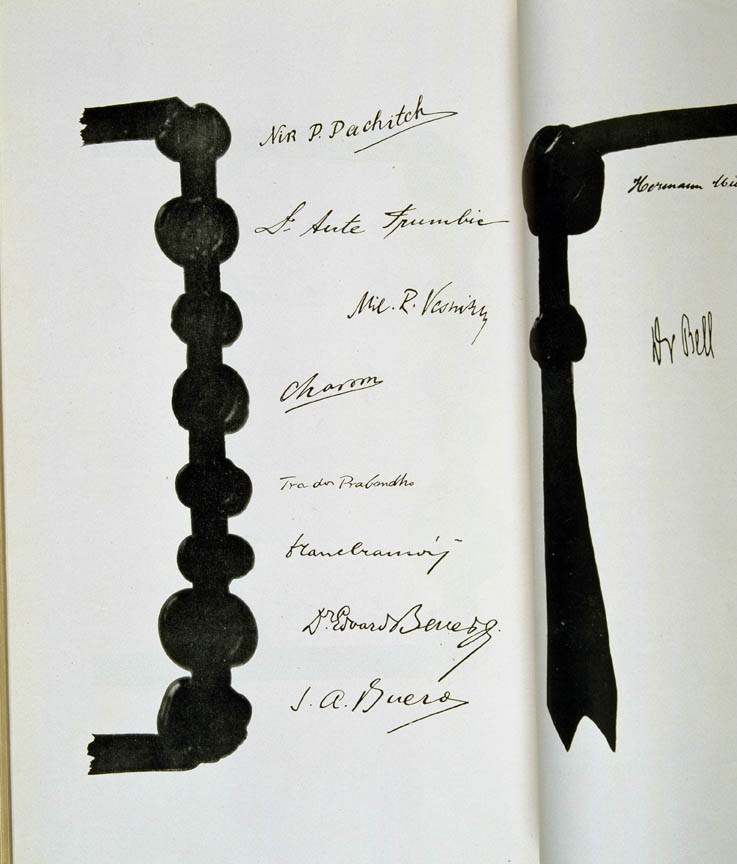 Nik P. Pachitch
Dr Ante Trumbic
Mil. R. Vesnitch
Charoon
Traidos Prabandhu
Dr Edvard Beneš
J. A. Buero
Hermann Mü
Dr Bell